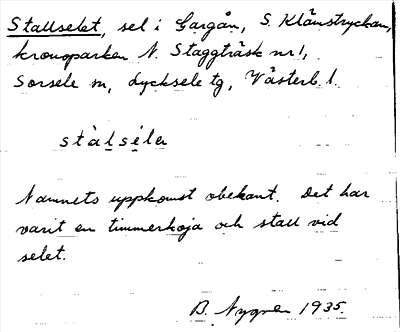 Stallselet, sel i Gargån, S. Klämstryckan,
kronoparken N. Staggträsk nr 1,
Sorsele sn, Lycksele tg, Västerb. l.
stàlséla
Namnets uppkomst obekant. Det har
varit en timmerkoja och stall vid
selet.
B. Nygren 1935.